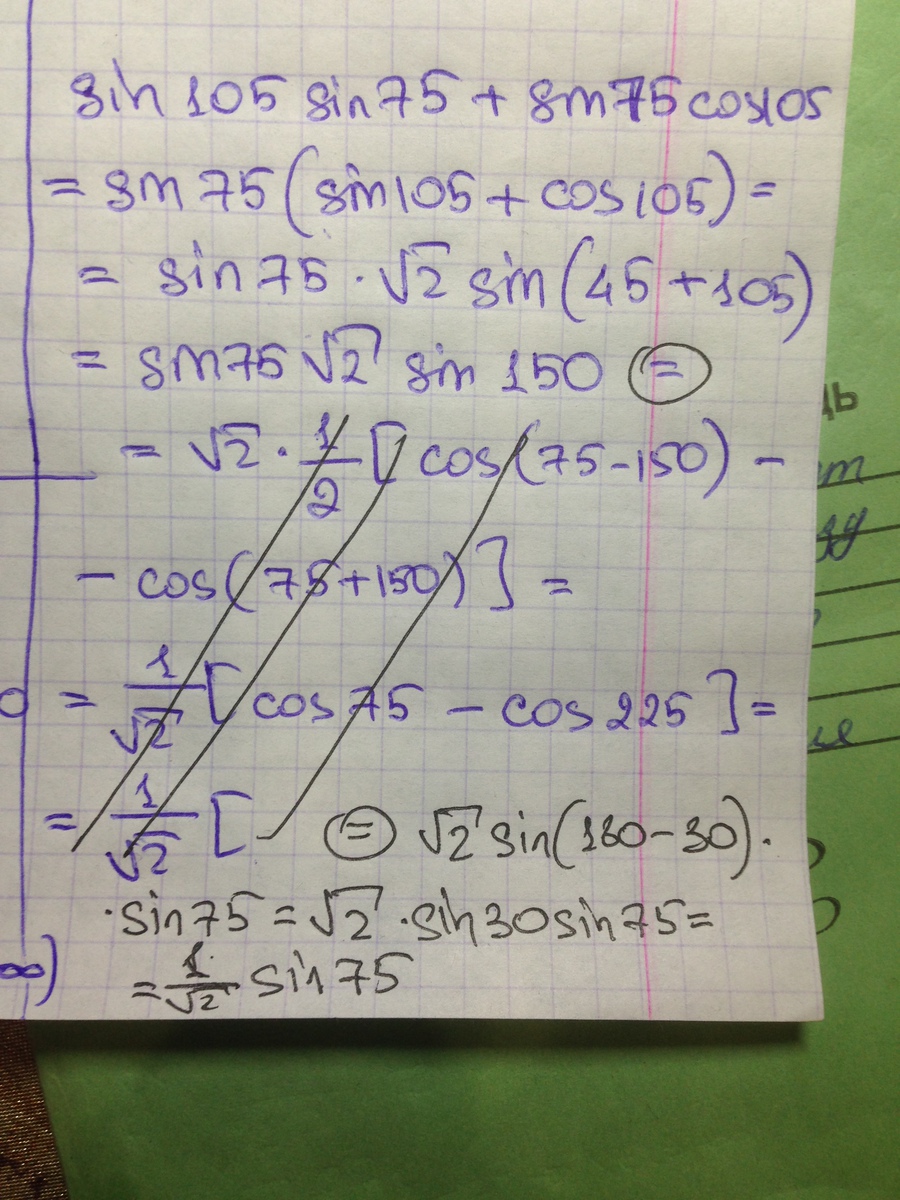 sin 105 sin 75 + sin 75 cos 105
= sin 75 (sin 105 + cos 105) =
= sin 75 · √2 sin (45 + 105)
= sin 75 √2 sin 150 =
= √2 · 1/2 [ cos (75 - 150) -
- cos (75 + 150) ] =
= 1/√2 [ cos 75 - cos 225 ] =
= 1/√2 [
= √2 sin (180 - 30) ·
· sin 75 = √2 · sin 30 sin 75 =
= 1/√2 sin 75
∞)